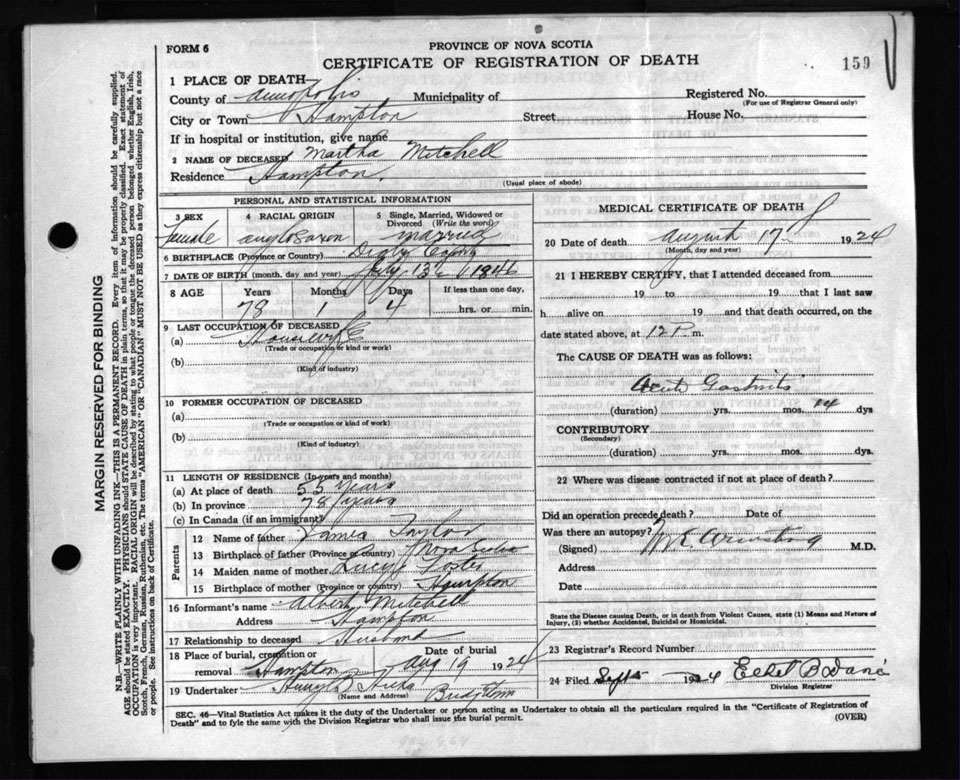 FORM 6
PROVINCE OF NOVA SCOTIA
CERTIFICATE OF REGISTRATION OF DEATH
159
1 PLACE OF DEATH
County of Annapolis Municipality of
Registered No.
(For use of Registrar General only)
City or Town Hampton Street House No.
If in hospital or institution, give name
2 NAME OF DECEASED Martha Mitchell
Residence Hampton.
(Usual place of abode)
MARGIN RESERVED FOR BINDING
N.B.—WRITE PLAINLY WITH UNFADING INK—THIS IS A PERMANENT RECORD. Every item of information should be carefully supplied.
AGE should be stated EXACTLY. PHYSICIANS should STATE CAUSE OF DEATH in plain terms, so that it may be properly classified. Exact statement of
OCCUPATION is very important. RACIAL ORIGIN will be described by stating to what people or tongue the deceased person belonged whether English, Irish,
Scotch, French, German, Russian, Ruthenian, etc. The terms "AMERICAN" OR "CANADIAN" MUST NOT BE USED as they express citizenship but not a race
or people. See instructions on back of Certificate.
PERSONAL AND STATISTICAL INFORMATION
3 SEX
Female
4 RACIAL ORIGIN
anglo Saxon
5 Single, Married, Widowed or
Divorced (Write the word)
Married
6 BIRTHPLACE (Province or Country) Digby
7 DATE OF BIRTH (month, day and year) 13 1846
8 AGE
Years Months Days
If less than one day,
78 1 4
hrs. or min.
9 LAST OCCUPATION OF DECEASED
(a) Housewife
(Trade or occupation or kind or work)
(b)
(Kind of industry)
10 FORMER OCCUPATION OF DECEASED
(a)
(Trade or occupation or kind of work)
(b)
(Kind of industry)
11 LENGTH OF RESIDENCE (In years and months)
(a) At place of death 55 Years
(b) In province 78 years
(c) In Canada (if an immigrant)
Parents
12 Name of father James Taylor
13 Birthplace of father (Province or country) Nova Scotia
14 Maiden name of mother Foster
15 Birthplace of mother (Province or country) Hampton
16 Informant's name Albert Mitchell
Address Hampton
17 Relationship to deceased Husband
18 Place of burial, cremation or
removal Hampton
Date of burial
Aug 19 1924
19 Undertaker Hicks Bridgetown
(Name and Address)
MEDICAL CERTIFICATE OF DEATH
20 Date of death August 17 1924
(Month, day and year)
21 I HEREBY CERTIFY, that I attended deceased from
19 to 19 that I last saw
h alive on 19 and that death occurred, on the
date stated above, at 12 P. m.
The CAUSE OF DEATH was as follows:
Acute Gastritis
(duration) yrs. mos. 14 dys
CONTRIBUTORY
(Secondary)
(duration) yrs. mos. dys.
22 Where was disease contracted if not at place of death?
Did an operation precede death? Date of
Was there an autopsy?
(Signed) Armstrong M.D.
Address
Date
State the Disease causing Death, or in death from Violent Causes, state (1) Means and Nature of
Injury, (2) whether Accidental, Suicidal or Homicidal.
23 Registrar's Record Number
24 Filed Sept 1924
Division Registrar
SEC. 46—Vital Statistics Act makes it the duty of the Undertaker or person acting as Undertaker to obtain all the particulars required in the "Certificate of Registration of
Death" and to fyle the same with the Division Registrar who shall issue the burial permit.
(OVER)